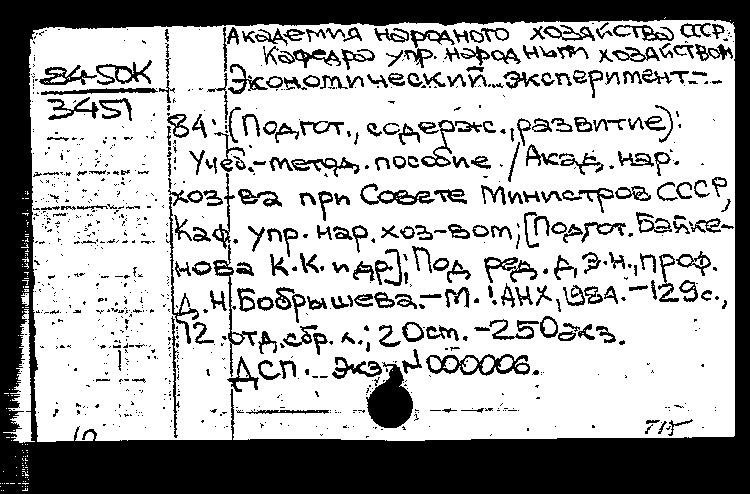 Академия народного хозяйства СССР.
Кафедра упр. народным хозяйством
84-50К
3451
Экономический эксперимент-
84: (Подгот., содерж., развитие):
Учеб.-метод. пособие / Акад. нар.
хоз-ва при Совете Министров СССР,
Каф. упр. нар. хоз-вом; [Подгот. Байке-
нова К.К. и др.]; Под ред. д.э.н., проф.
Д.Н. Бобрышева. - М.: АНХ, 1984. - 129 с.,
12 отд. сбр. л.; 20 см. - 250 экз.
ДСП. Экз. № 000006.